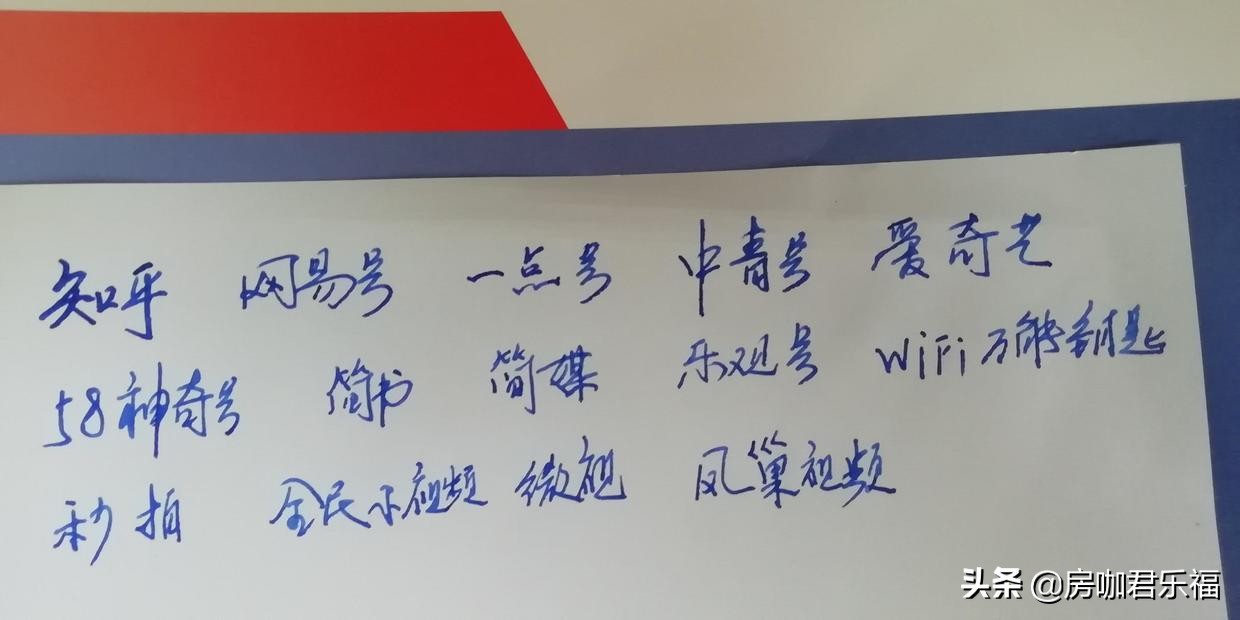 知乎 网易号 一点号 中青号 爱奇艺
58神奇号 简书 简媒 乐观号 WiFi万能钥匙
秒拍 全民小视频 微视 凤巢视频
头条 @房咖君乐福